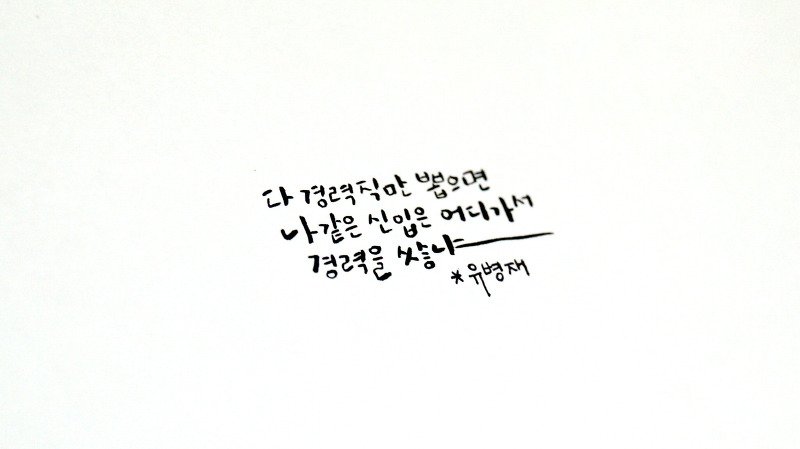 다 경력직만 뽑으면
나같은 신입은 어디가서
경력을 쌓나
*유병재